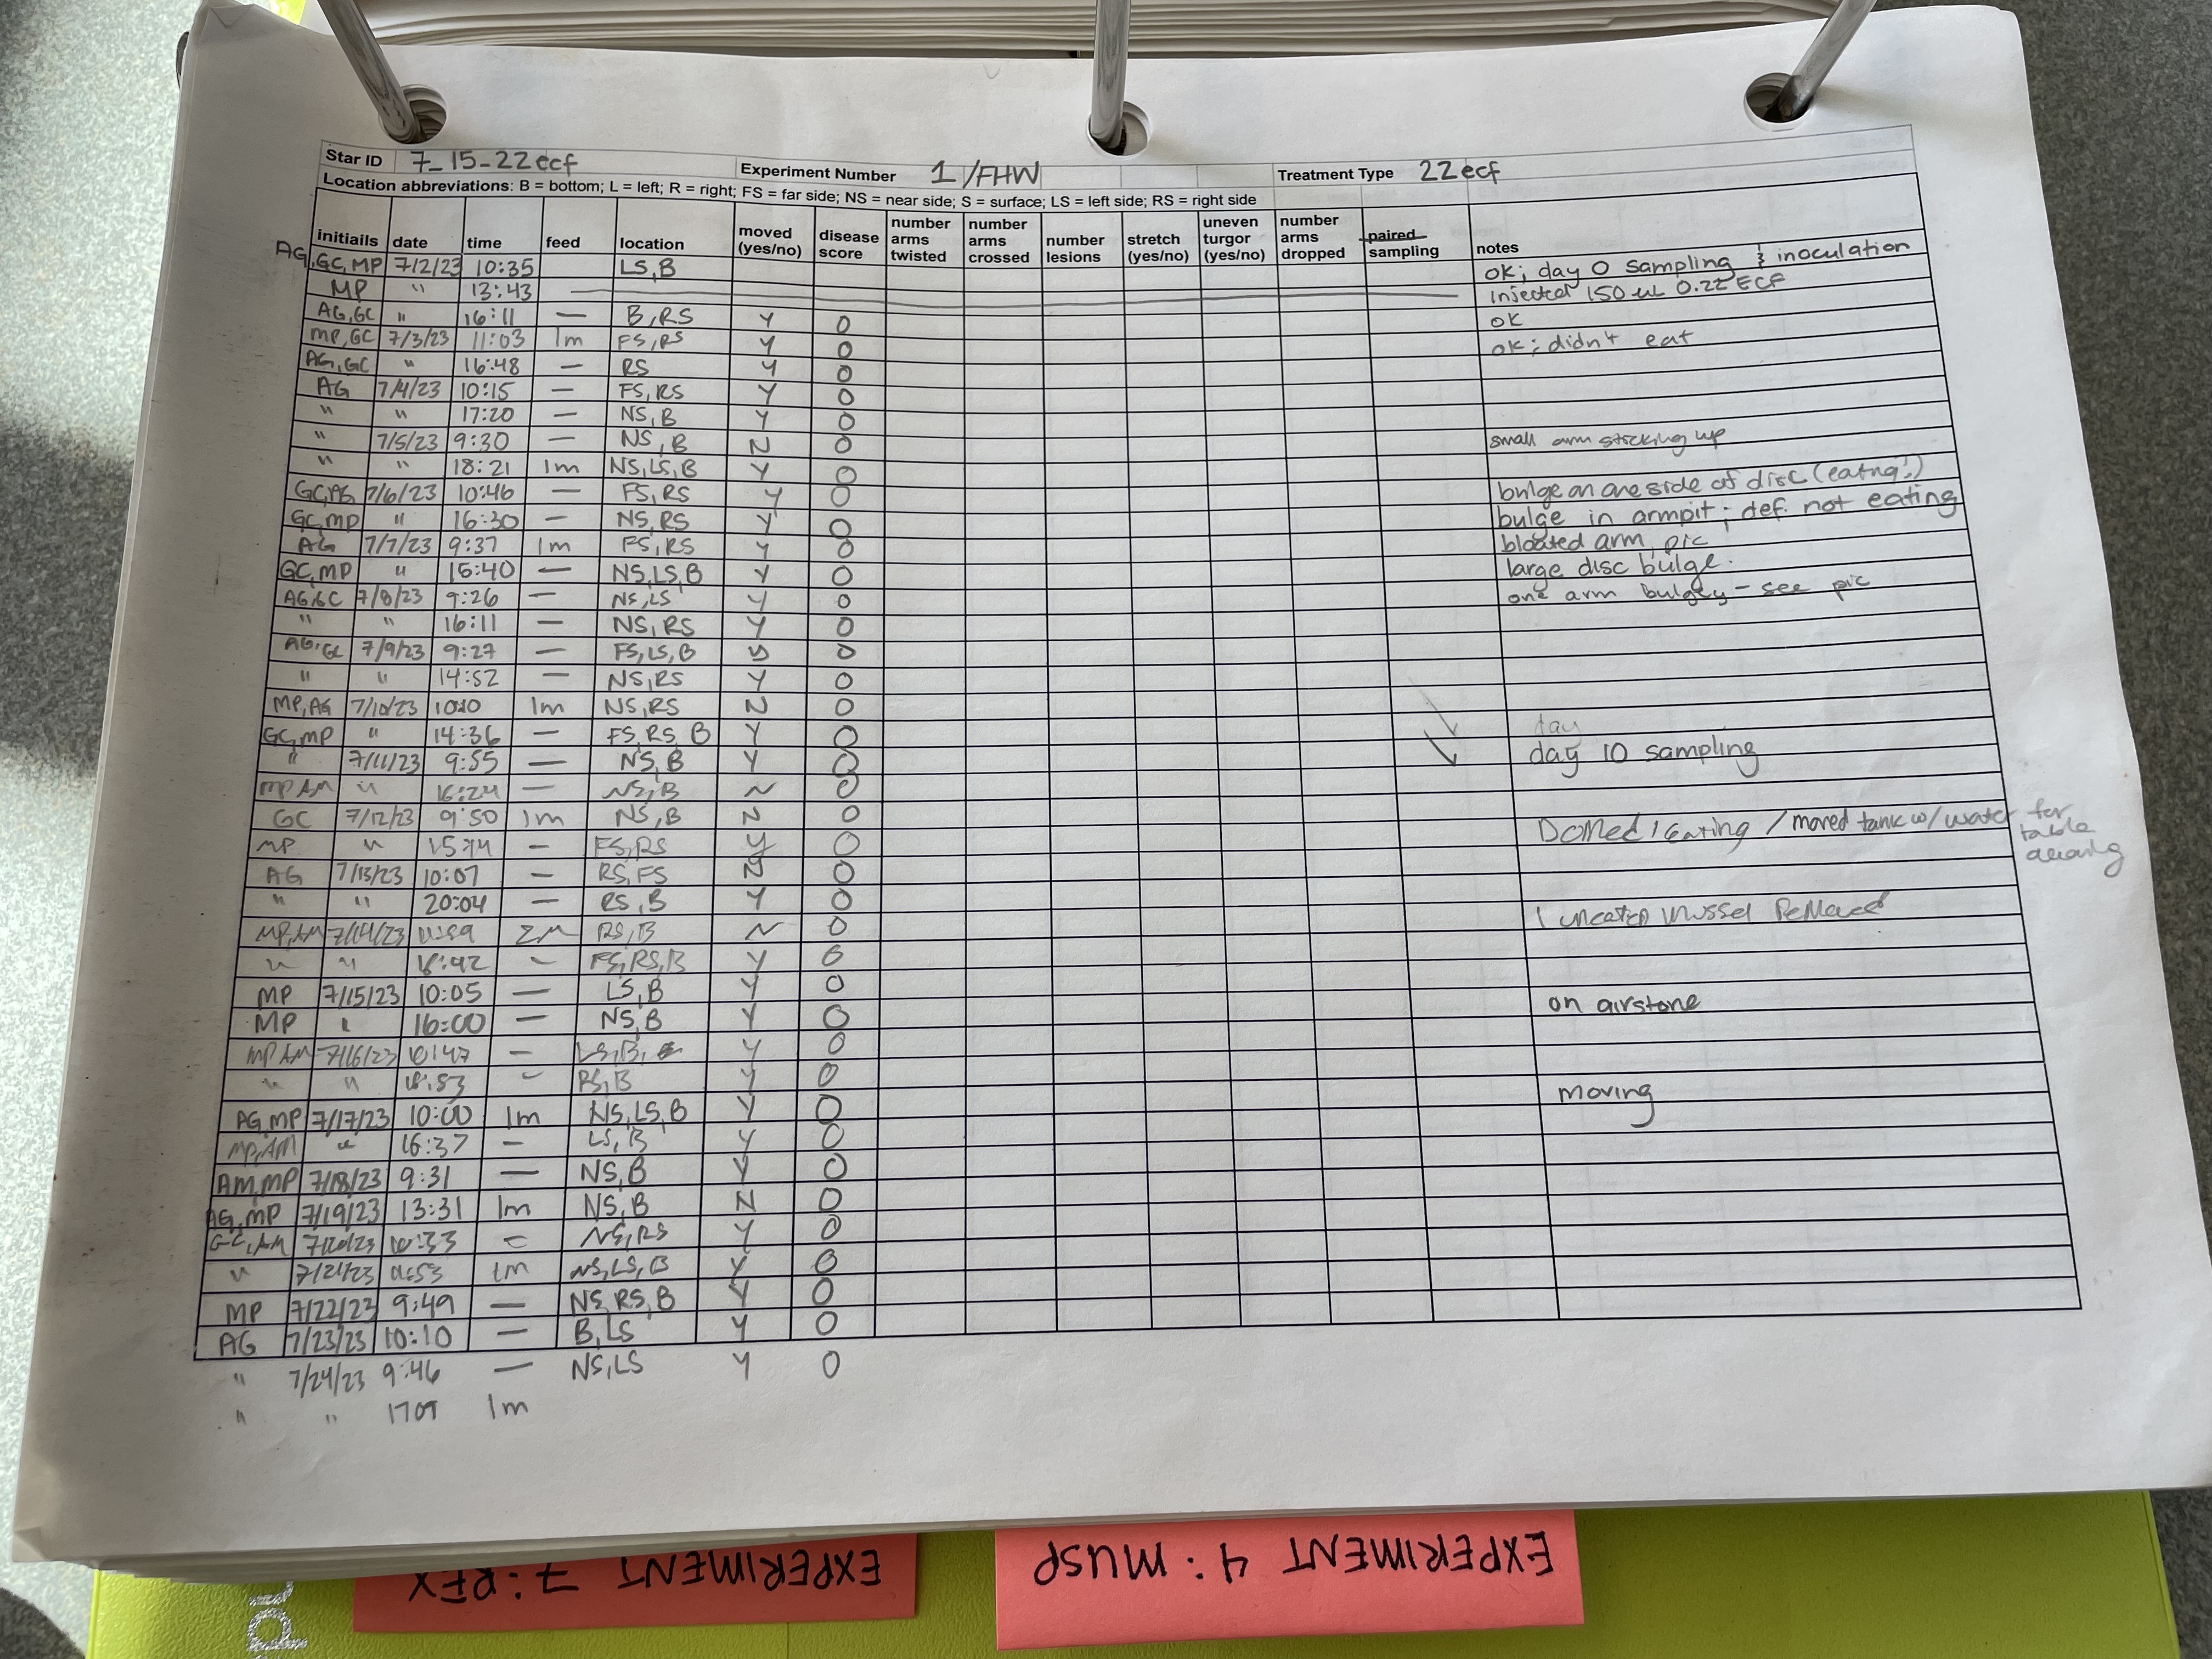 Star ID 7_15-22ecf Experiment Number 1/FHW Treatment Type 22ecf
Location abbreviations: B = bottom; L = left; R = right; FS = far side; NS = near side; S = surface; LS = left side; RS = right side
initiails date time feed location moved (yes/no) disease score number arms twisted number arms crossed number lesions stretch (yes/no) uneven turgor (yes/no) number arms dropped paired sampling notes
AG,GC,MP 7/2/23 10:35 LS,B ok; day 0 sampling & inoculation
MP " 13:43 injected 150 uL 0.22 ECF
AG,GC " 16:11 — B,RS Y 0 ok
MP,GC 7/3/23 11:03 1m FS,RS Y 0 ok; didn't eat
AG,GC " 16:48 — RS Y 0
AG 7/4/23 10:15 — FS,RS Y 0
" " 17:20 — NS,B Y 0
" 7/5/23 9:30 — NS,B N 0 small arm sticking up
" " 18:21 1m NS,LS,B Y 0
GC,AG 7/6/23 10:46 — FS,RS Y 0 bulge on one side of disc (eating?)
GC,MP " 16:30 — NS,RS Y 0 bulge in armpit; def. not eating
AG 7/7/23 9:37 1m FS,RS Y 0 bloated arm, pic
GC,MP " 15:40 — NS,LS,B Y 0 large disc bulge.
AG,GC 7/8/23 9:26 — NS,LS Y 0 one arm bulgey - see pic
" " 16:11 — NS,RS Y 0
AG,GC 7/9/23 9:27 — FS,LS,B 0
" " 14:52 — NS,RS Y 0
MP,AG 7/10/23 1m NS,RS N 0
GC,MP " 14:36 — FS,RS,B Y 0 day
" 7/11/23 9:55 — NS,B Y 0 day 10 sampling
MP,AM " 16:24 — NS,B N 0
GC 7/12/23 9:50 1m NS,B N 0 Domed / eating / moved tank w/ water for table
MP " — FS,RS Y 0
AG 7/13/23 10:07 — RS,FS N 0
" " 20:04 — RS,B Y 0
MP,AM 7/14/23 RS,B N 0 1 uneaten mussel removed
" " — FS,RS,B Y 0
MP 7/15/23 10:05 — LS,B Y 0
MP " 16:00 — NS,B Y 0 on airstone
MP AM 7/16/23 — LS,B, Y 0
" " — RS,B Y 0
AG,MP 7/17/23 10:00 1m NS,LS,B Y 0 moving
MP,AM " 16:37 — LS,B Y 0
AM,MP 7/18/23 9:31 — NS,B Y 0
AG,MP 7/19/23 13:31 1m NS,B N 0
GC,AM 7/20/23 10:33 — NS,RS Y 0
" 7/21/23 1m NS,LS,B Y 0
MP 7/22/23 9:49 — NS,RS,B Y 0
AG 7/23/23 10:10 — B,LS Y 0
" 7/24/23 9:46 — NS,LS Y 0
" " 1m
EXPERIMENT 7: REX
EXPERIMENT 4: MUSP